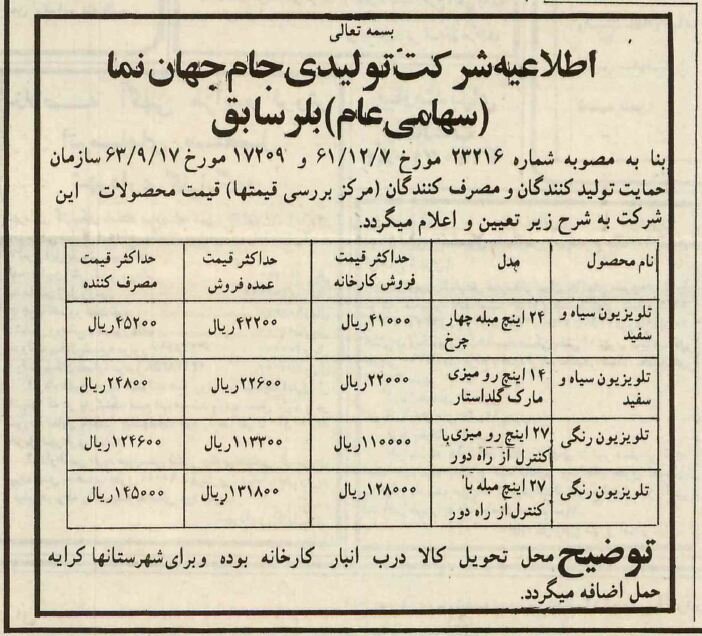 بسمه تعالی
اطلاعیه شرکت تولیدی جام جهان نما
(سهامی عام) بلر سابق
بنا به مصوبه شماره ۲۳۲۱۶ مورخ ۶۱/۱۲/۷ و ۱۷۲۰۹ مورخ ۶۳/۹/۱۷ سازمان
حمایت تولید کنندگان و مصرف کنندگان (مرکز بررسی قیمتها) قیمت محصولات این
شرکت به شرح زیر تعیین و اعلام میگردد.
نام محصول مدل حداکثر قیمت فروش کارخانه حداکثر قیمت عمده فروش حداکثر قیمت مصرف کننده
تلویزیون سیاه و سفید ۲۴ اینچ مبله چهار چرخ ۴۱۰۰۰ریال ۴۲۲۰۰ریال ۴۵۲۰۰ریال
تلویزیون سیاه و سفید ۱۴ اینچ رو میزی مارک گلداستار ۲۲۰۰۰ریال ۲۲۶۰۰ریال ۲۴۸۰۰ریال
تلویزیون رنگی ۲۷ اینچ رو میزی با کنترل از راه دور ۱۱۰۰۰۰ریال ۱۱۳۳۰۰ریال ۱۲۴۶۰۰ریال
تلویزیون رنگی ۲۷ اینچ مبله با کنترل از راه دور ۱۲۸۰۰۰ریال ۱۳۱۸۰۰ریال ۱۴۵۰۰۰ریال
توضیح محل تحویل کالا درب انبار کارخانه بوده وبرای شهرستانها کرایه
حمل اضافه میگردد.